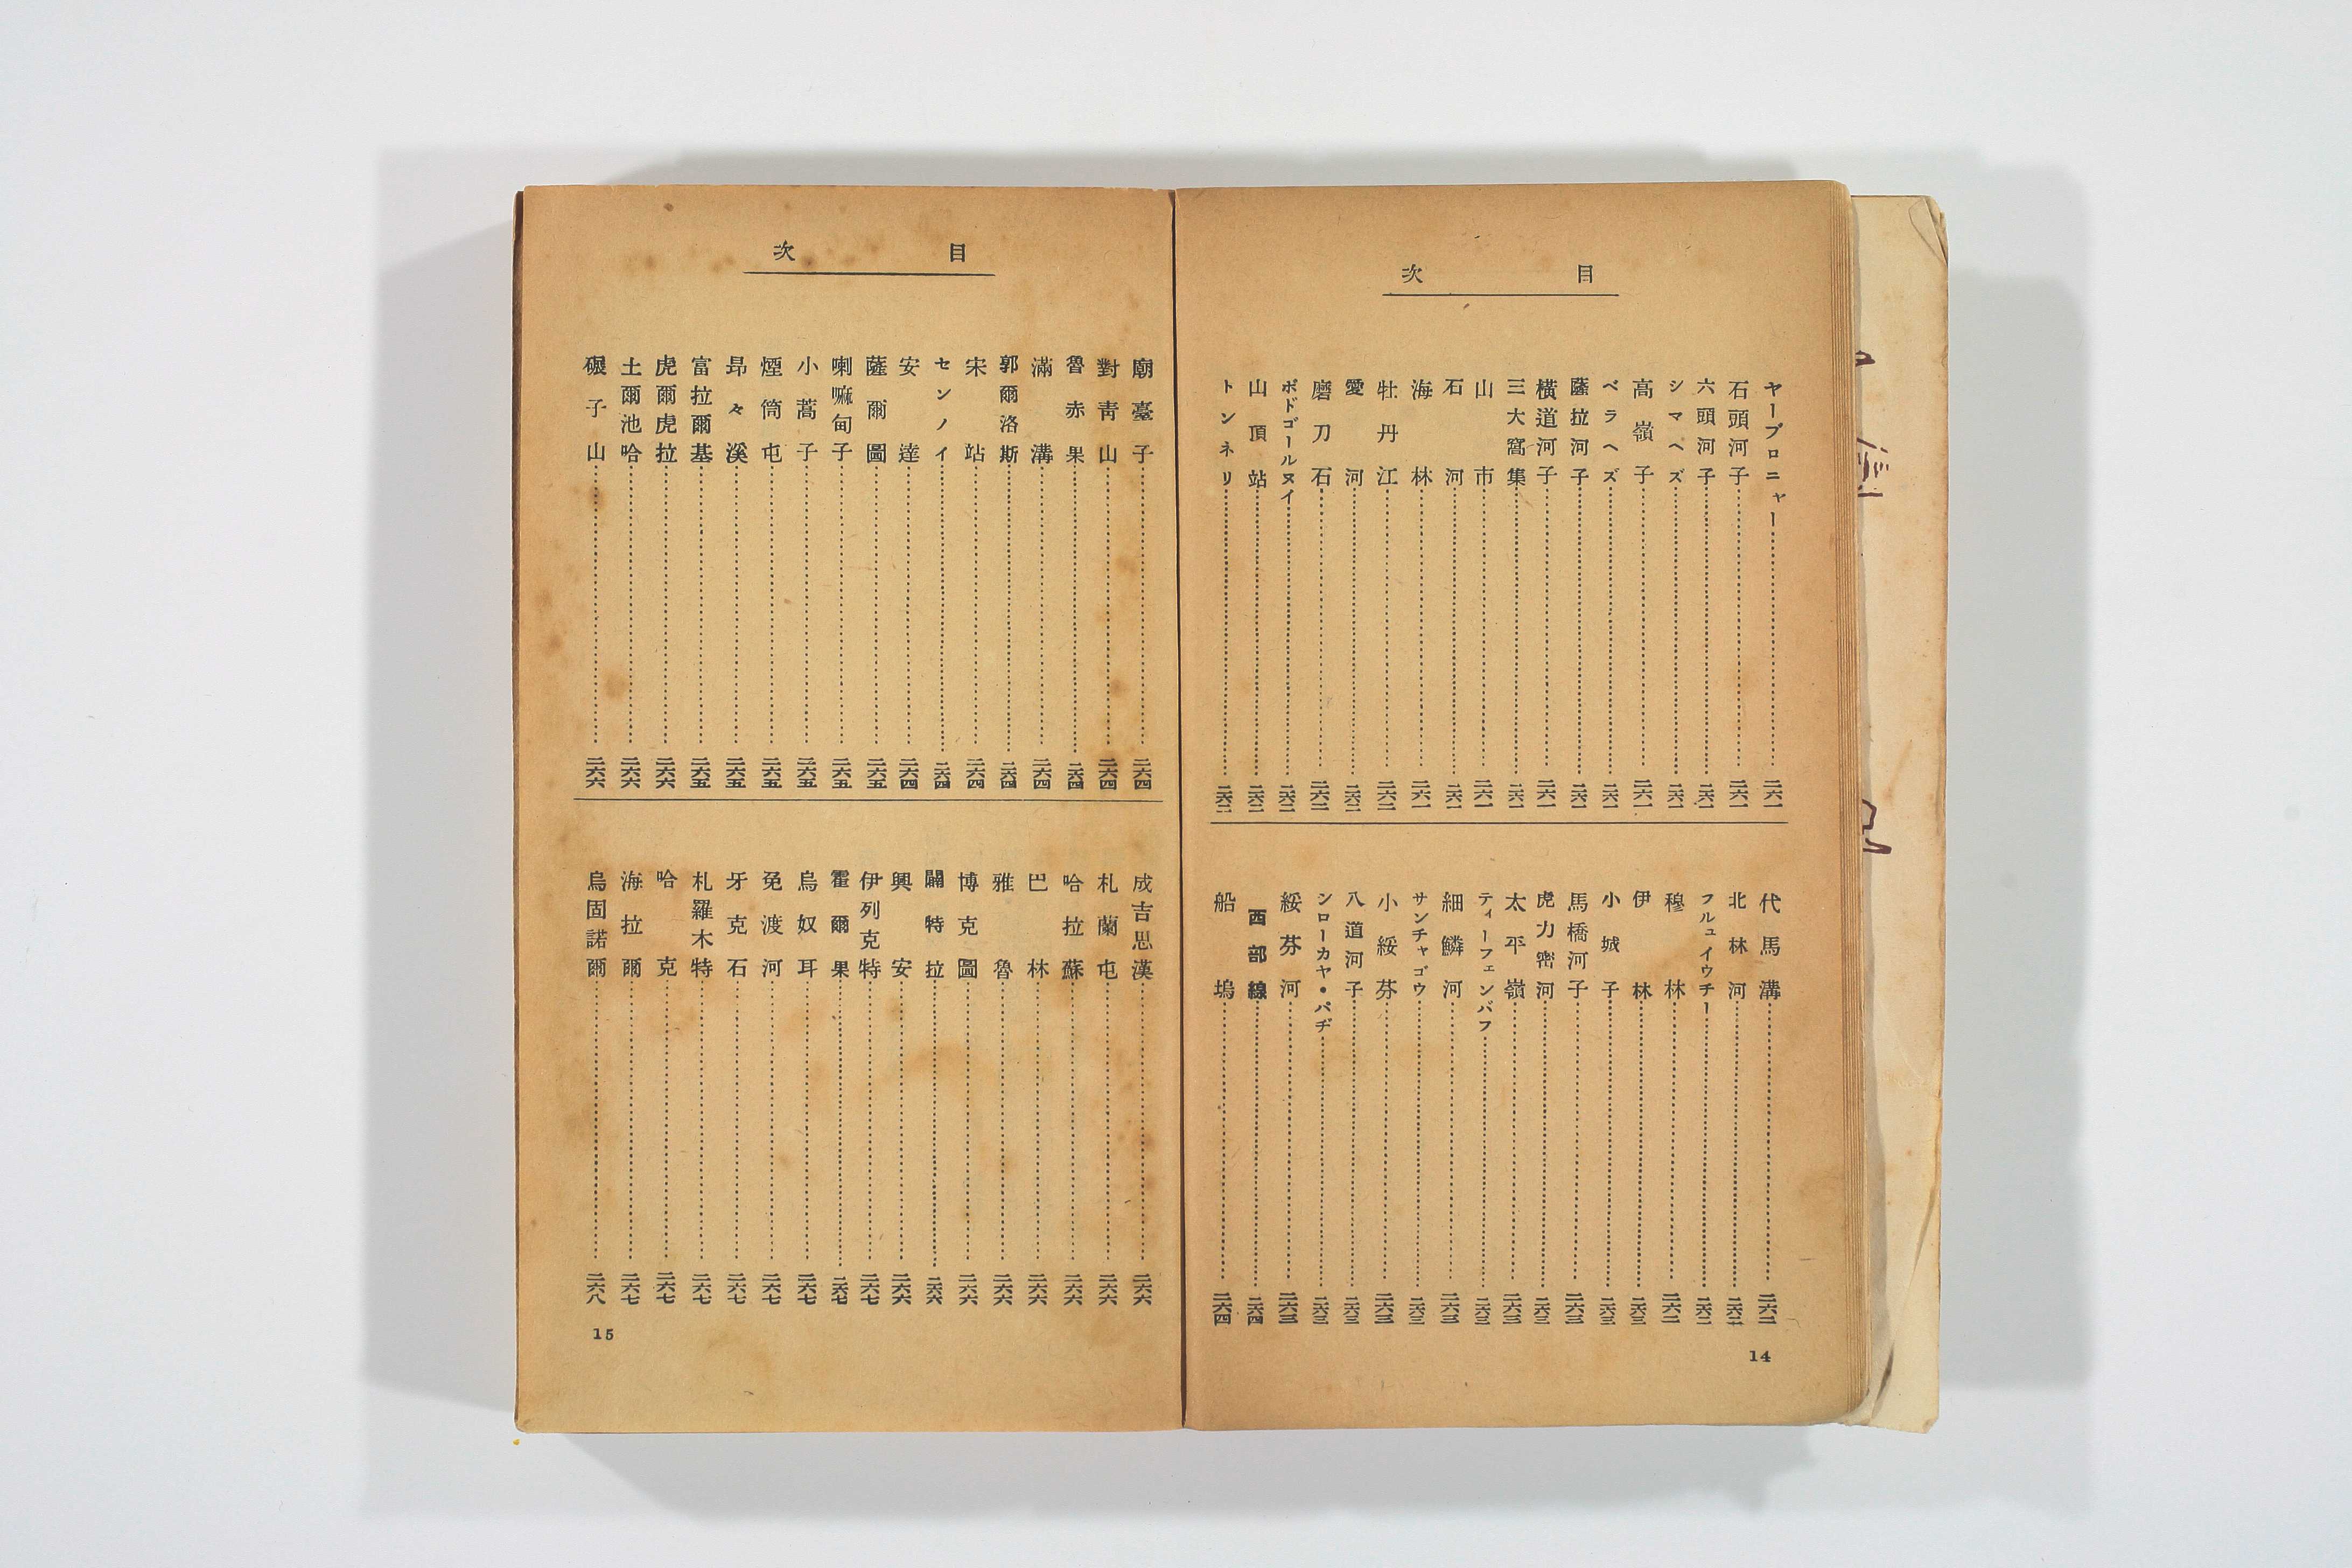 目次
ヤーブロニャー……二六一
石頭河子……二六一
六頭河子……二六一
シマヘズ……二六一
高嶺子……二六一
ベラヘズ……二六一
薩拉河子……二六一
横道河子……二六一
三大窩集……二六一
山市……二六一
石河……二六一
海林……二六一
牡丹江……二六二
愛河……二六二
磨刀石……二六二
ポドゴールヌイ……二六二
山頂站……二六二
トンネリ……二六二
代馬溝……二六二
北林河……二六二
フルュイウチー……二六二
穆林……二六二
伊林……二六三
小城子……二六三
馬橋河子……二六三
虎力密河……二六三
太平嶺……二六三
ティーフェンバフ……二六三
細鱗河……二六三
サンチャゴウ……二六三
小綏芬……二六三
八道河子……二六三
シローカヤ・パヂ……二六三
綏芬河……二六三
西部線……二六四
船塢……二六四
14
目次
廟臺子……二六四
對青山……二六四
魯赤果……二六四
滿溝……二六四
郭爾洛斯……二六四
宋站……二六四
センノイ……二六四
安達……二六四
薩爾圖……二六五
喇嘛甸子……二六五
小蒿子……二六五
煙筒屯……二六五
昻々溪……二六五
富拉爾基……二六五
虎爾虎拉……二六六
土爾池哈……二六六
碾子山……二六六
成吉思漢……二六六
札蘭屯……二六六
哈拉蘇……二六六
巴林……二六六
雅魯……二六六
博克圖……二六六
闢特拉……二六六
興安……二六六
伊列克特……二六七
霍爾果……二六七
烏奴耳……二六七
免渡河……二六七
牙克石……二六七
札羅木特……二六七
哈克……二六七
海拉爾……二六七
烏固諾爾……二六八
15